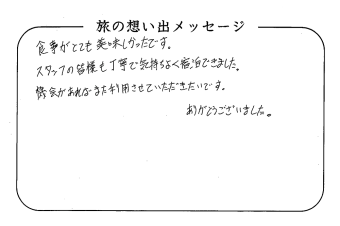 旅の想い出メッセージ
食事がとても美味しかったです。
スタッフの皆様も丁寧で気持ちよく宿泊できました。
機会があればまた利用させていただきたいです。
ありがとうございました。